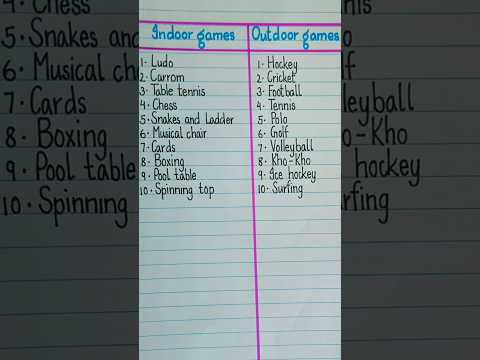 Indoor games
1. Ludo
2. Carrom
3. Table tennis
4. Chess
5. Snakes and Ladder
6. Musical chair
7. Cards
8. Boxing
9. Pool table
10. Spinning top
Outdoor games
1. Hockey
2. Cricket
3. Football
4. Tennis
5. Polo
6. Golf
7. Volleyball
8. Kho-Kho
9. Ice hockey
10. Surfing
4. Chess
5. Snakes and
6. Musical chair
7. Cards
8. Boxing
9. Pool table
10. Spinning
lleyball
o-Kho
hockey
rfing